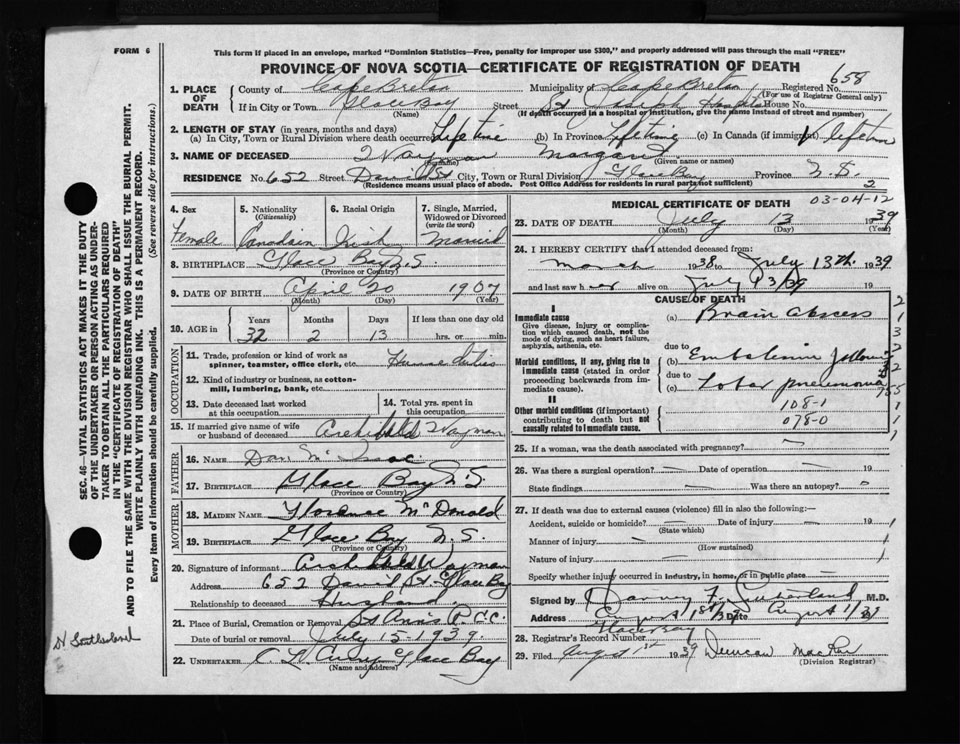 FORM 6
This form if placed in an envelope, marked "Dominion Statistics—Free, penalty for improper use $300," and properly addressed will pass through the mail "FREE"
PROVINCE OF NOVA SCOTIA—CERTIFICATE OF REGISTRATION OF DEATH
658
1. PLACE OF DEATH County of Cape Breton Municipality of Cape Breton Registered No.
(For use of Registrar General only)
If in City or Town Glace Bay Street St Joseph House No.
(Name) (If death occurred in a hospital or institution, give the name instead of street and number)
2. LENGTH OF STAY (in years, months and days)
(a) In City, Town or Rural Division where death occurred Lifetime (b) In Province Lifetime (c) In Canada (if immigrant) lifetime
3. NAME OF DECEASED Wayman Margaret
(Given name or names)
RESIDENCE No. 652 Street David St City, Town or Rural Division Glace Bay Province N.S.
(Residence means usual place of abode. Post Office Address for residents in rural parts not sufficient) 2
4. Sex Female
5. Nationality (Citizenship) Canadian
6. Racial Origin Irish
7. Single, Married, Widowed or Divorced (write the word) Married
8. BIRTHPLACE Glace Bay N.S.
(Province or Country)
9. DATE OF BIRTH April 20 1907
(Month) (Day) (Year)
10. AGE in Years Months Days If less than one day old
32 2 13 hrs. or min.
OCCUPATION
11. Trade, profession or kind of work as spinner, teamster, office clerk, etc. duties
12. Kind of industry or business, as cotton-mill, lumbering, bank, etc.
13. Date deceased last worked at this occupation
14. Total yrs. spent in this occupation
15. If married give name of wife or husband of deceased Archibald Wayman
FATHER
16. NAME Dan McIsaac
17. BIRTHPLACE Glace Bay N.S.
(Province or Country)
MOTHER
18. MAIDEN NAME Florence McDonald
19. BIRTHPLACE Glace Bay N.S.
(Province or Country)
20. Signature of informant Archibald Wayman
Address 652 David St. Glace Bay
Relationship to deceased Husband
21. Place of Burial, Cremation or Removal St Anns R.C.C.
Date of burial or removal July 15-1939.
22. UNDERTAKER Glace Bay
(Name and address)
MEDICAL CERTIFICATE OF DEATH
03-04-12
23. DATE OF DEATH July 13 1939
(Month) (Day) (Year)
24. I HEREBY CERTIFY that I attended deceased from:
March 1938 to July 13th 1939
and last saw her alive on July 13/39 19
CAUSE OF DEATH
I
Immediate cause
Give disease, injury or complication which caused death, not the mode of dying, such as heart failure, asphyxia, asthenia, etc.
(a) Brain abscess
due to
Morbid conditions, if any, giving rise to immediate cause (stated in order proceeding backwards from immediate cause).
(b)
due to
(c) Lobar pneumonia
II
Other morbid conditions (if important) contributing to death but not causally related to immediate cause.
108-1
078-0
25. If a woman, was the death associated with pregnancy?
26. Was there a surgical operation? Date of operation 19
State findings Was there an autopsy?
27. If death was due to external causes (violence) fill in also the following:—
Accident, suicide or homicide? Date of injury 19
(State which)
Manner of injury
(How sustained)
Nature of injury
Specify whether injury occurred in industry, in home, or in public place
Signed by Harvey F. Sutherland M.D.
Address Glace Bay Date August 1/39
28. Registrar's Record Number
29. Filed August 1st 1939 Duncan MacRae
(Division Registrar)
SEC. 46—VITAL STATISTICS ACT MAKES IT THE DUTY OF THE UNDERTAKER OR PERSON ACTING AS UNDERTAKER TO OBTAIN ALL THE PARTICULARS REQUIRED IN THE "CERTIFICATE OF REGISTRATION OF DEATH" AND TO FILE THE SAME WITH THE DIVISION REGISTRAR WHO SHALL ISSUE THE BURIAL PERMIT.
WRITE PLAINLY WITH UNFADING INK. THIS IS A PERMANENT RECORD.
Every item of information should be carefully supplied. (See reverse side for instructions.)